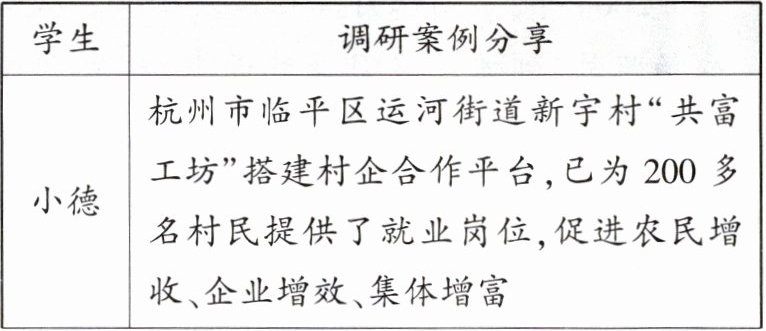 学生
调研案例分享
小德
杭州市临平区运河街道新宇村“共富
工坊”搭建村企合作平台,已为 200 多
名村民提供了就业岗位,促进农民增
收、企业增效、集体增富